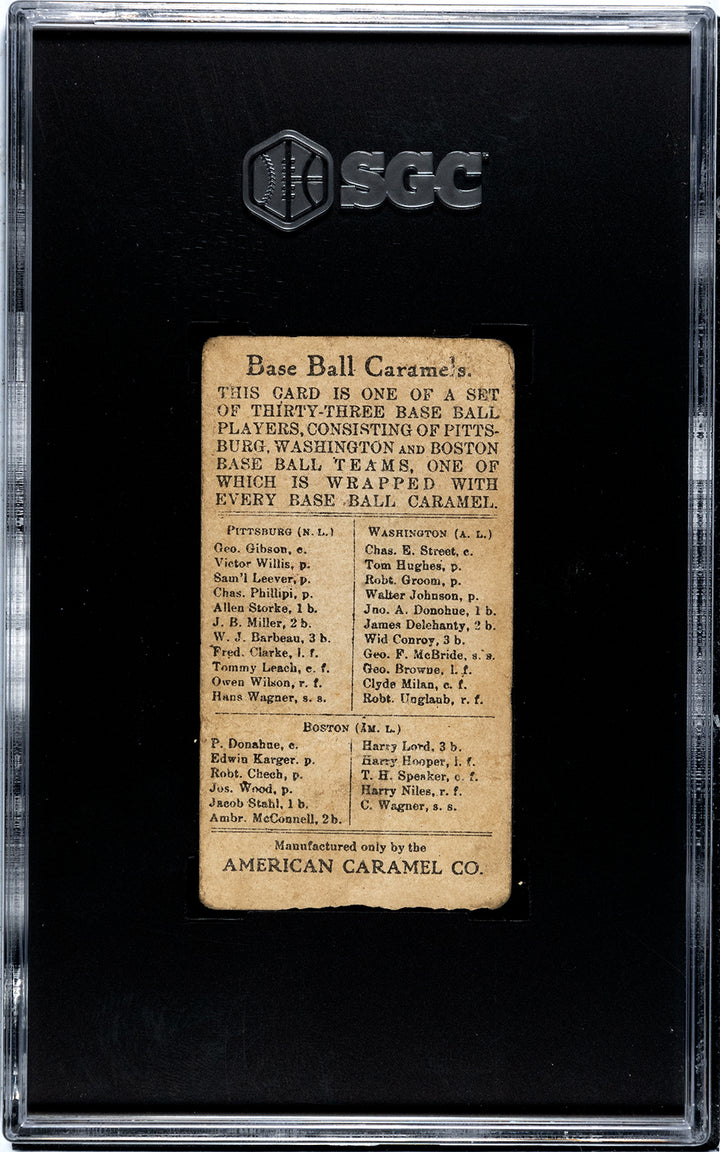 SGC
Base Ball Caramels.
THIS CARD IS ONE OF A SET
OF THIRTY-THREE BASE BALL
PLAYERS, CONSISTING OF PITTS-
BURG, WASHINGTON AND BOSTON
BASE BALL TEAMS, ONE OF
WHICH IS WRAPPED WITH
EVERY BASE BALL CARAMEL.
PITTSBURG (N. L.)
Geo. Gibson, c.
Victor Willis, p.
Sam'l Leever, p.
Chas. Phillipi, p.
Allen Storke, 1 b.
J. B. Miller, 2 b.
W. J. Barbeau, 3 b.
Fred. Clarke, l. f.
Tommy Leach, c. f.
Owen Wilson, r. f.
Hans Wagner, s. s.
WASHINGTON (A. L.)
Chas. E. Street, c.
Tom Hughes, p.
Robt. Groom, p.
Walter Johnson, p.
Jno. A. Donohue, 1 b.
James Delehanty, 2 b.
Wid Conroy, 3 b.
Geo. F. McBride, s. s.
Geo. Browne, l. f.
Clyde Milan, c. f.
Robt. Unglaub, r. f.
BOSTON (AM. L.)
P. Donahue, c.
Edwin Karger. p.
Robt. Chech, p.
Jos. Wood, p.
Jacob Stahl, 1 b.
Ambr. McConnell, 2 b.
Harry Lord, 3 b.
Harry Hooper, l. f.
T. H. Speaker, c. f.
Harry Niles, r. f.
C. Wagner, s. s.
Manufactured only by the
AMERICAN CARAMEL CO.